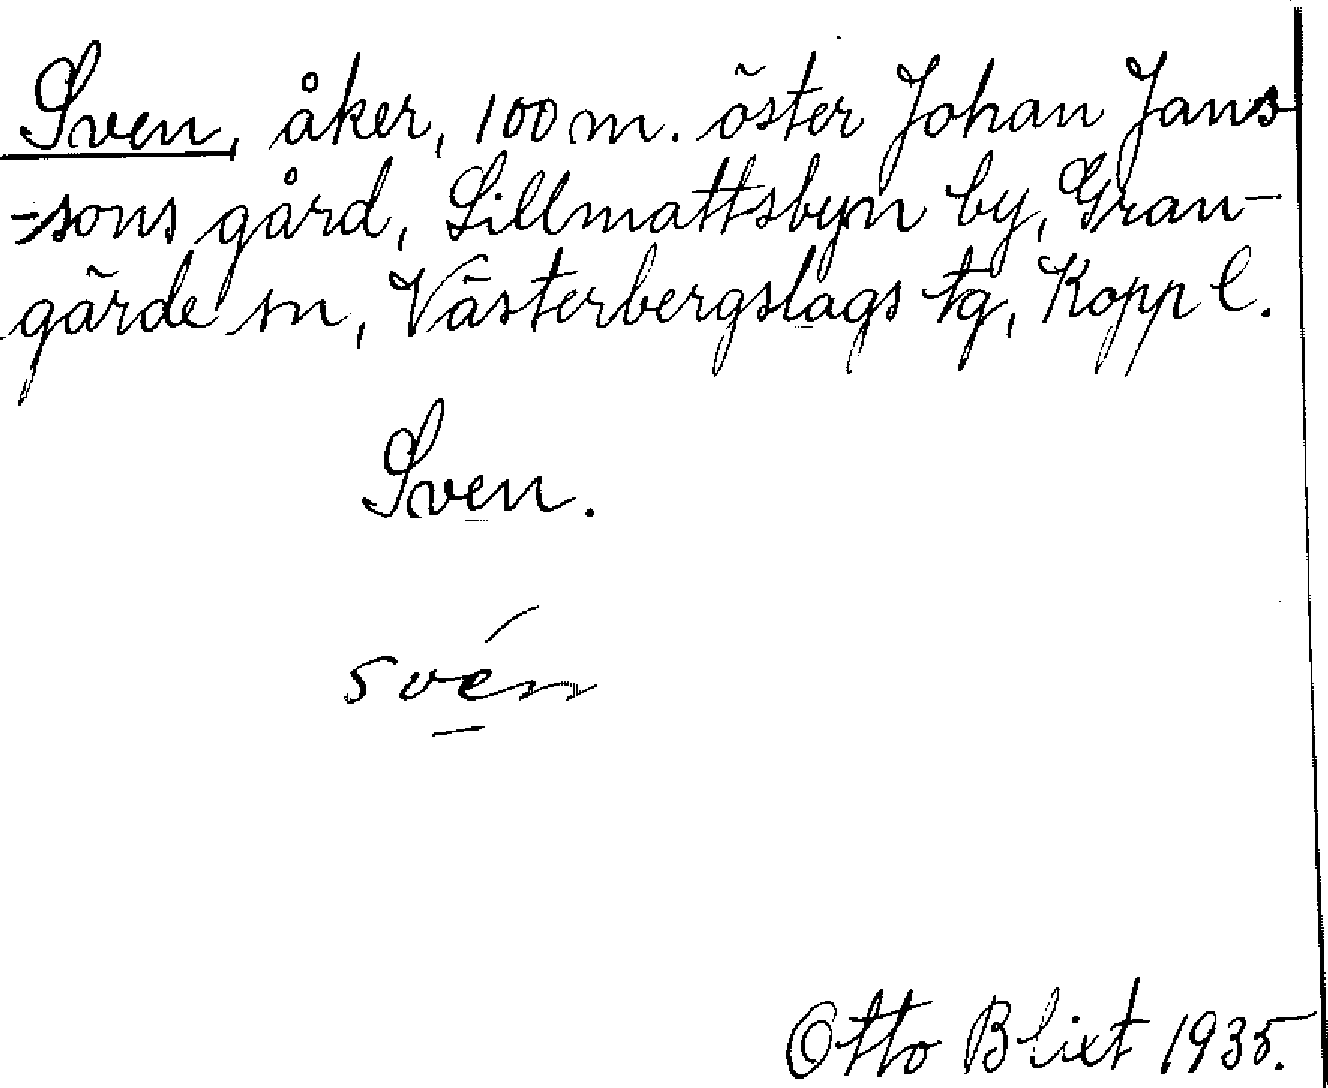 Sven, åker, 100 m. öster Johan Jans
-sons gård, Lillmattsbyn by, Gran-
gärde sn, Västerbergslags tg, Kopp l.
Sven.
svén
Otto Blixt 1935.